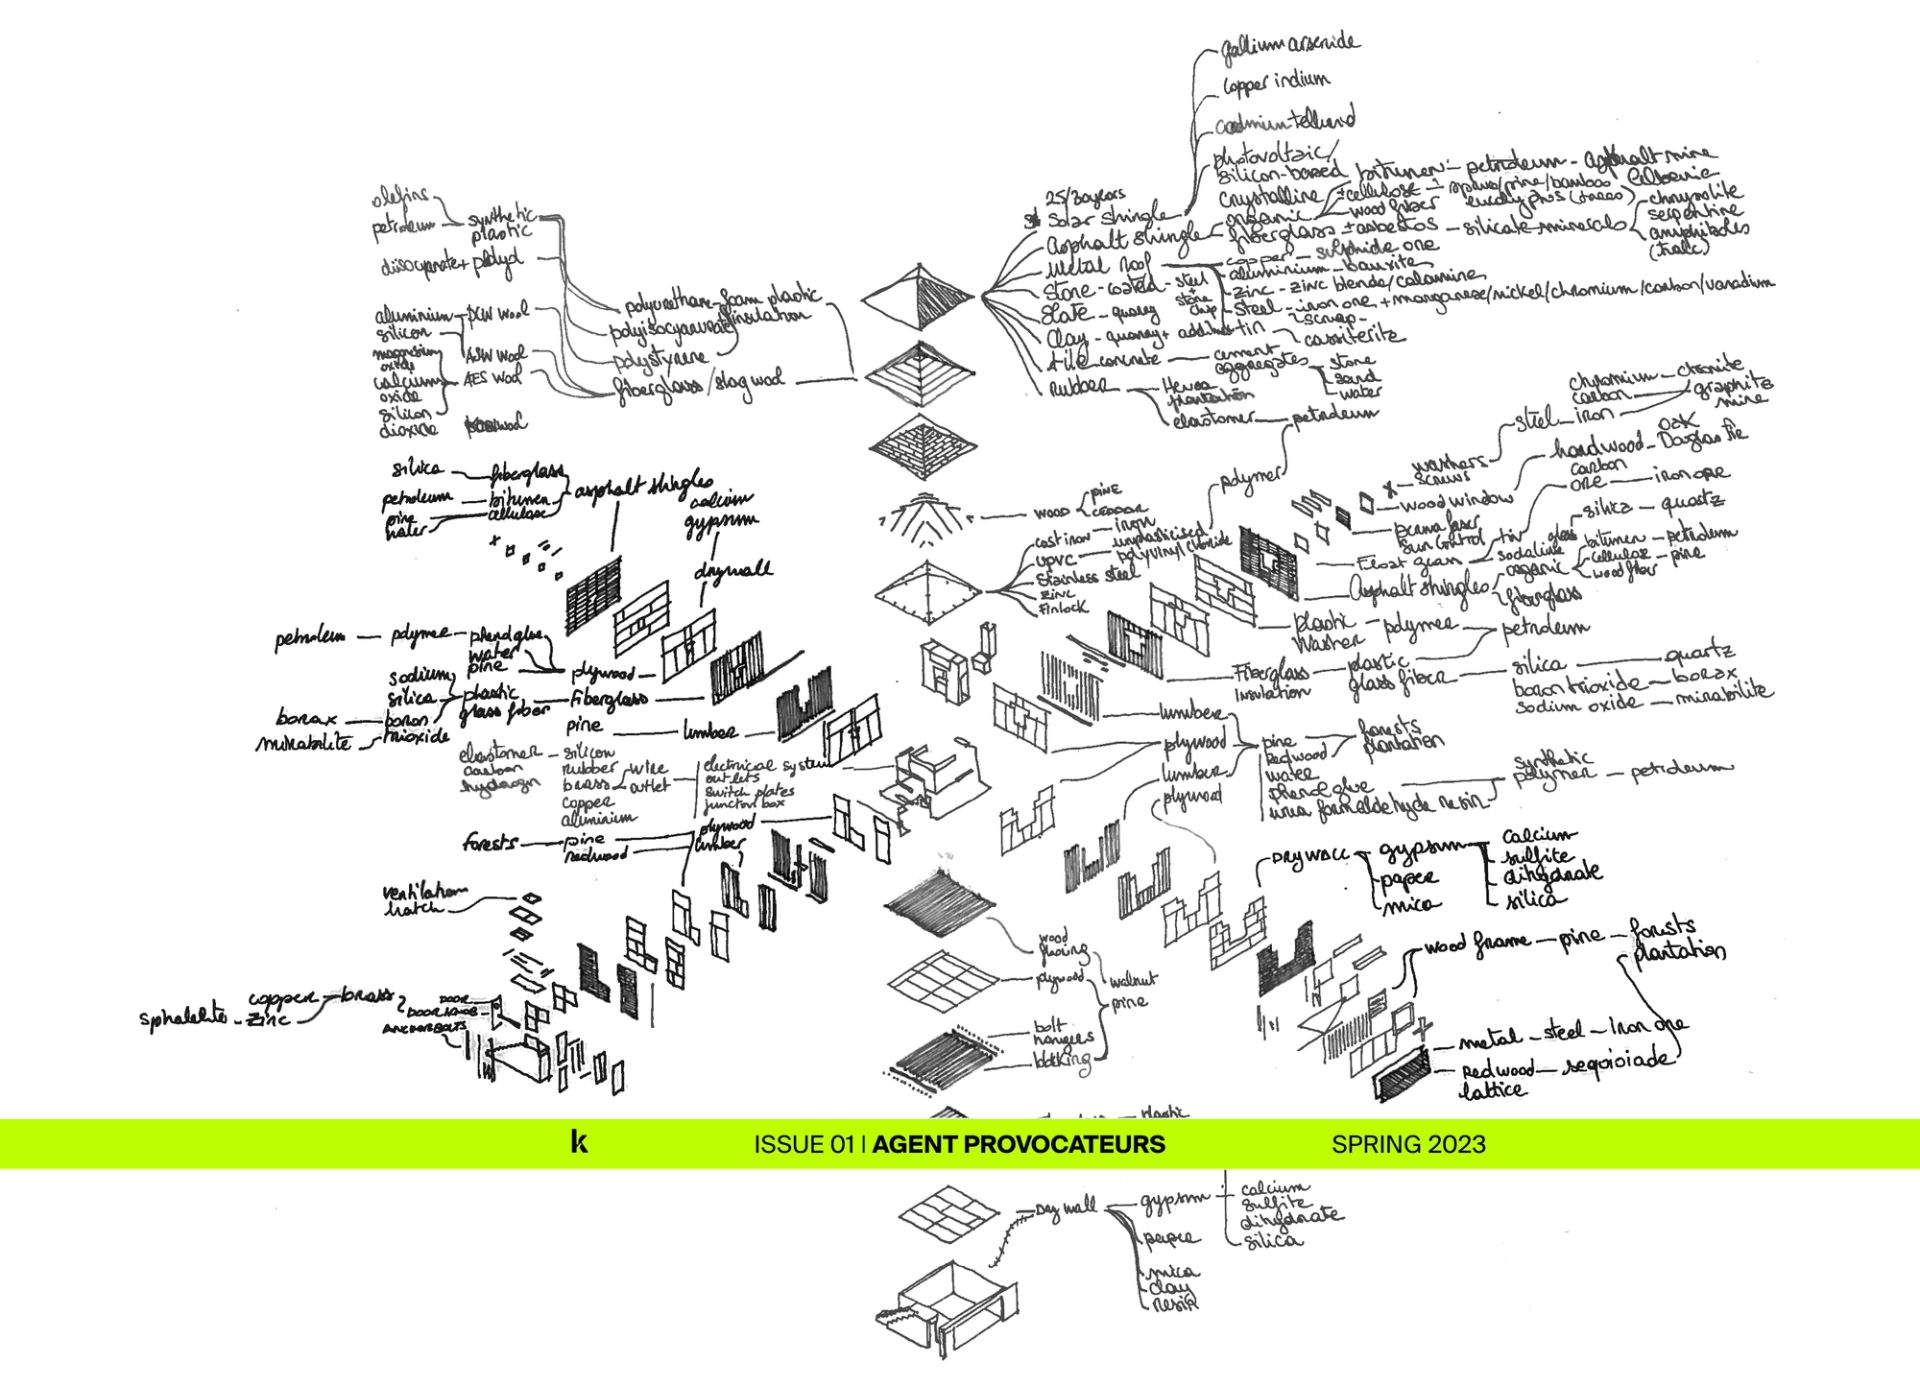 gallium arsenide
copper indium
cadmium tellurid
photovoltaic/
silicon-based
crystalline
25/30years
Solar Shingle
Asphalt shingle
organic
bitumen - petroleum - asphalt mine
+cellulose - spruce/pine/bamboo
wood fiber
eucalyptus (trees)
fiberglass ± asbestos - silicate minerals
chrysolite
serpentine
amphiboles
(talc)
Metal Roof
copper - sulphide ore
aluminium - bauxite
zinc - zinc blende/calamine
steel - iron ore + manganese/nickel/chromium/carbon/vanadium
scrap
tin - cassiterite
Stone-coated-steel
+
stone
chip
Slate - quarry
Clay - quarry + additives
tile concrete - cement
aggregates
stone
sand
water
Rubber
Hevea
plantation
elastomer - petroleum
polymer
olefins
petroleum - synthetic
plastic
diisocyanate + polyol
aluminium
silicon
PCW wool
magnesium
oxide
calcium
oxide
silicon
dioxide
ASW wool
AES wool
polyurethane-foam plastic
insulation
polyisocyanurate
polystyrene
fiberglass/slag wool
silica - fiberglass
petroleum - bitumen
pine
water
cellulose
asphalt shingles
calcium
gypsum
drywall
wood
pine
cedar
cast iron - iron
UPVC
unplasticised
polyvinyl chloride
Stainless steel
Zinc
Finlock
chromium - chromite
carbon
graphite
mine
steel - iron
washers
screws
wood window
hardwood - oak
Douglas fir
carbon
ore - iron ore
sun control
Float glass
tin
glass
sodalime
silica - quartz
Asphalt shingles
organic
bitumen - petroleum
cellulose - pine
wood fiber
fiberglass
plastic
washer - polymer
petroleum
Fiberglass
Insulation
plastic
glass fiber
silica - quartz
boron trioxide - borax
sodium oxide - mirabilite
petroleum - polymer - phenol glue
water
pine
plywood
sodium
silica
boron
trioxide
borax
mirabilite
plastic
glass fiber
fiberglass
pine
lumber
elastomer - silicon
carbon
hydrogen
rubber
brass
copper
aluminium
wire
outlet
electrical system
outlets
switch plates
junction box
forests - pine
redwood
plywood
lumber
lumber
plywood
lumber
plywood
pine
Redwood
water
phenol glue
urea formaldehyde resin
forests
plantation
synthetic
polymer - petroleum
DRYWALL
gypsum
paper
mica
calcium
sulfite
dihydrate
silica
ventilation
hatch
wood
plywood
walnut
pine
bolt
hangers
blocking
wood frame - pine - forests
plantation
metal - steel - iron ore
Redwood
lattice
sphalelite - zinc
copper - brass
DOOR
DOOR KNOB
ANCHOR BOLTS
plastic
k
ISSUE 01 | AGENT PROVOCATEURS
SPRING 2023
Dry wall
gypsum
paper
mica
clay
resin
calcium
sulfite
dihydrate
silica